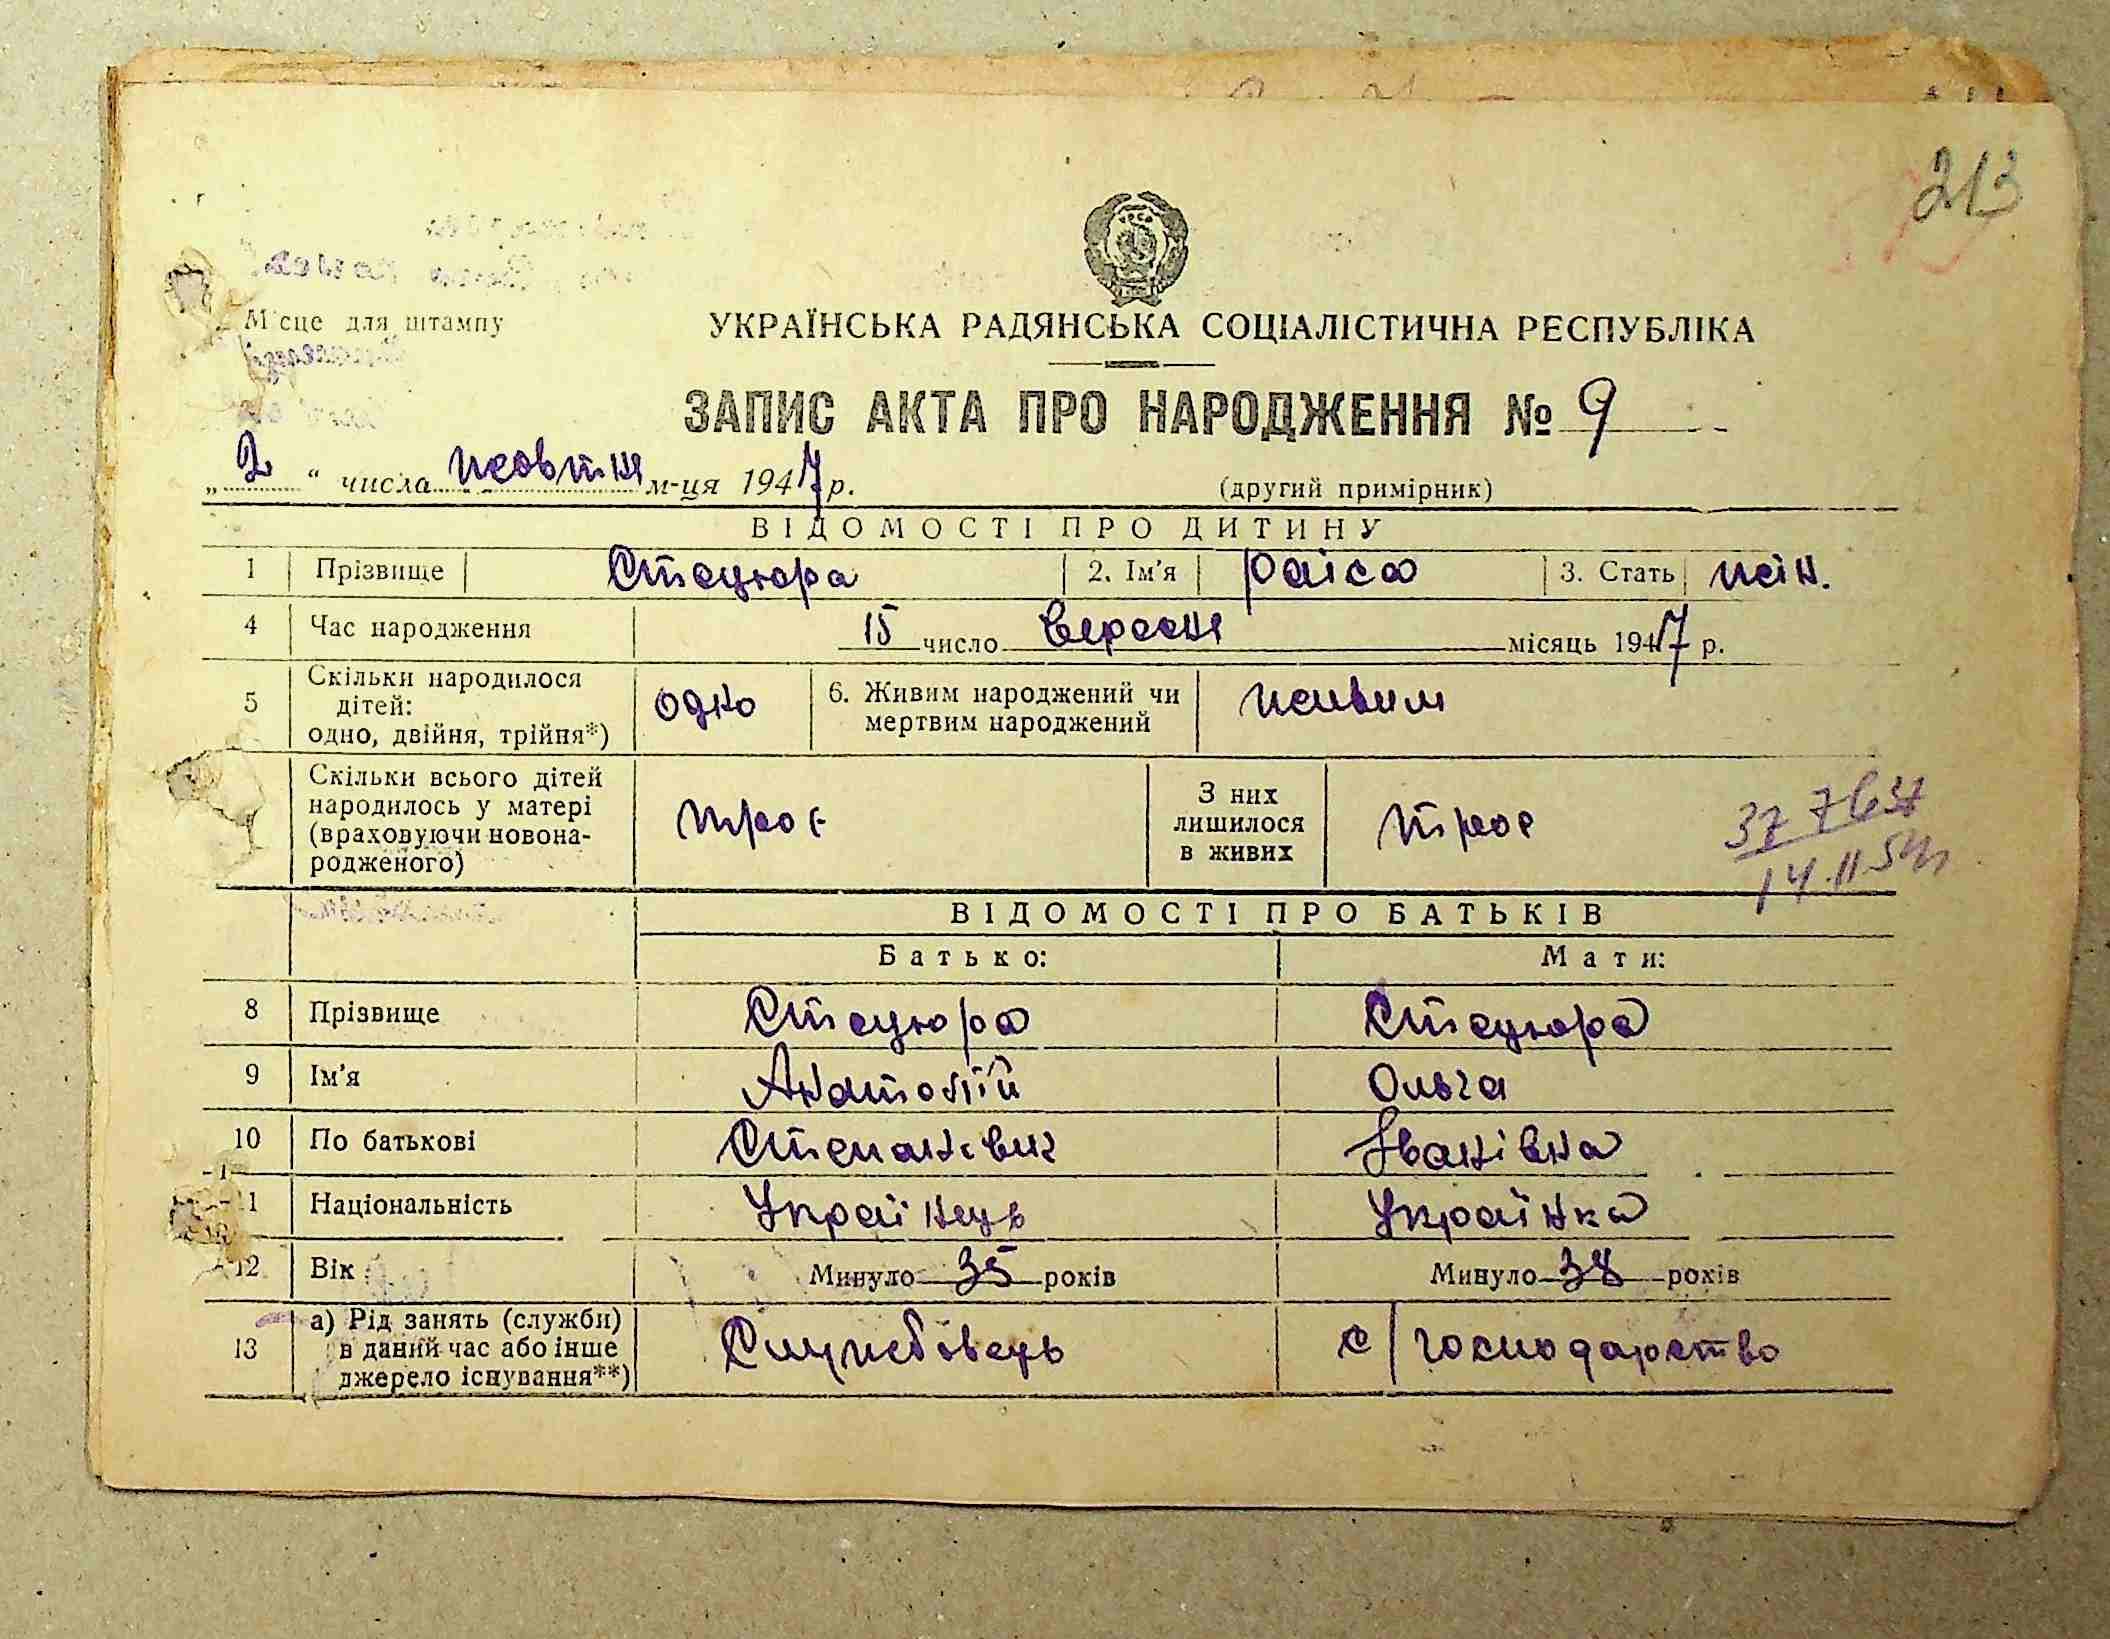 213
Місце для штампу
УКРАЇНСЬКА РАДЯНСЬКА СОЦІАЛІСТИЧНА РЕСПУБЛІКА
ЗАПИС АКТА ПРО НАРОДЖЕННЯ № 9
„ 2 “ числа жовтня м-ця 1947 р. (другий примірник)
ВІДОМОСТІ ПРО ДИТИНУ
1 Прізвище Стецюра 2. Ім'я Раїса 3. Стать жін.
4 Час народження 15 число вересня місяць 1947 р.
5 Скільки народилося дітей: одно, двійня, трійня*) одно 6. Живим народжений чи мертвим народжений живим
Скільки всього дітей народилось у матері (враховуючи новонародженого) троє З них лишилося в живих троє
14.11.54
ВІДОМОСТІ ПРО БАТЬКІВ
Батько: Мати:
8 Прізвище Стецюра Стецюра
9 Ім'я Анатолій Ольга
10 По батькові Степанович Іванівна
11 Національність Українець Українка
12 Вік Минуло 35 років Минуло 38 років
13 а) Рід занять (служби) в даний час або інше джерело існування**) Службовець с/господарство